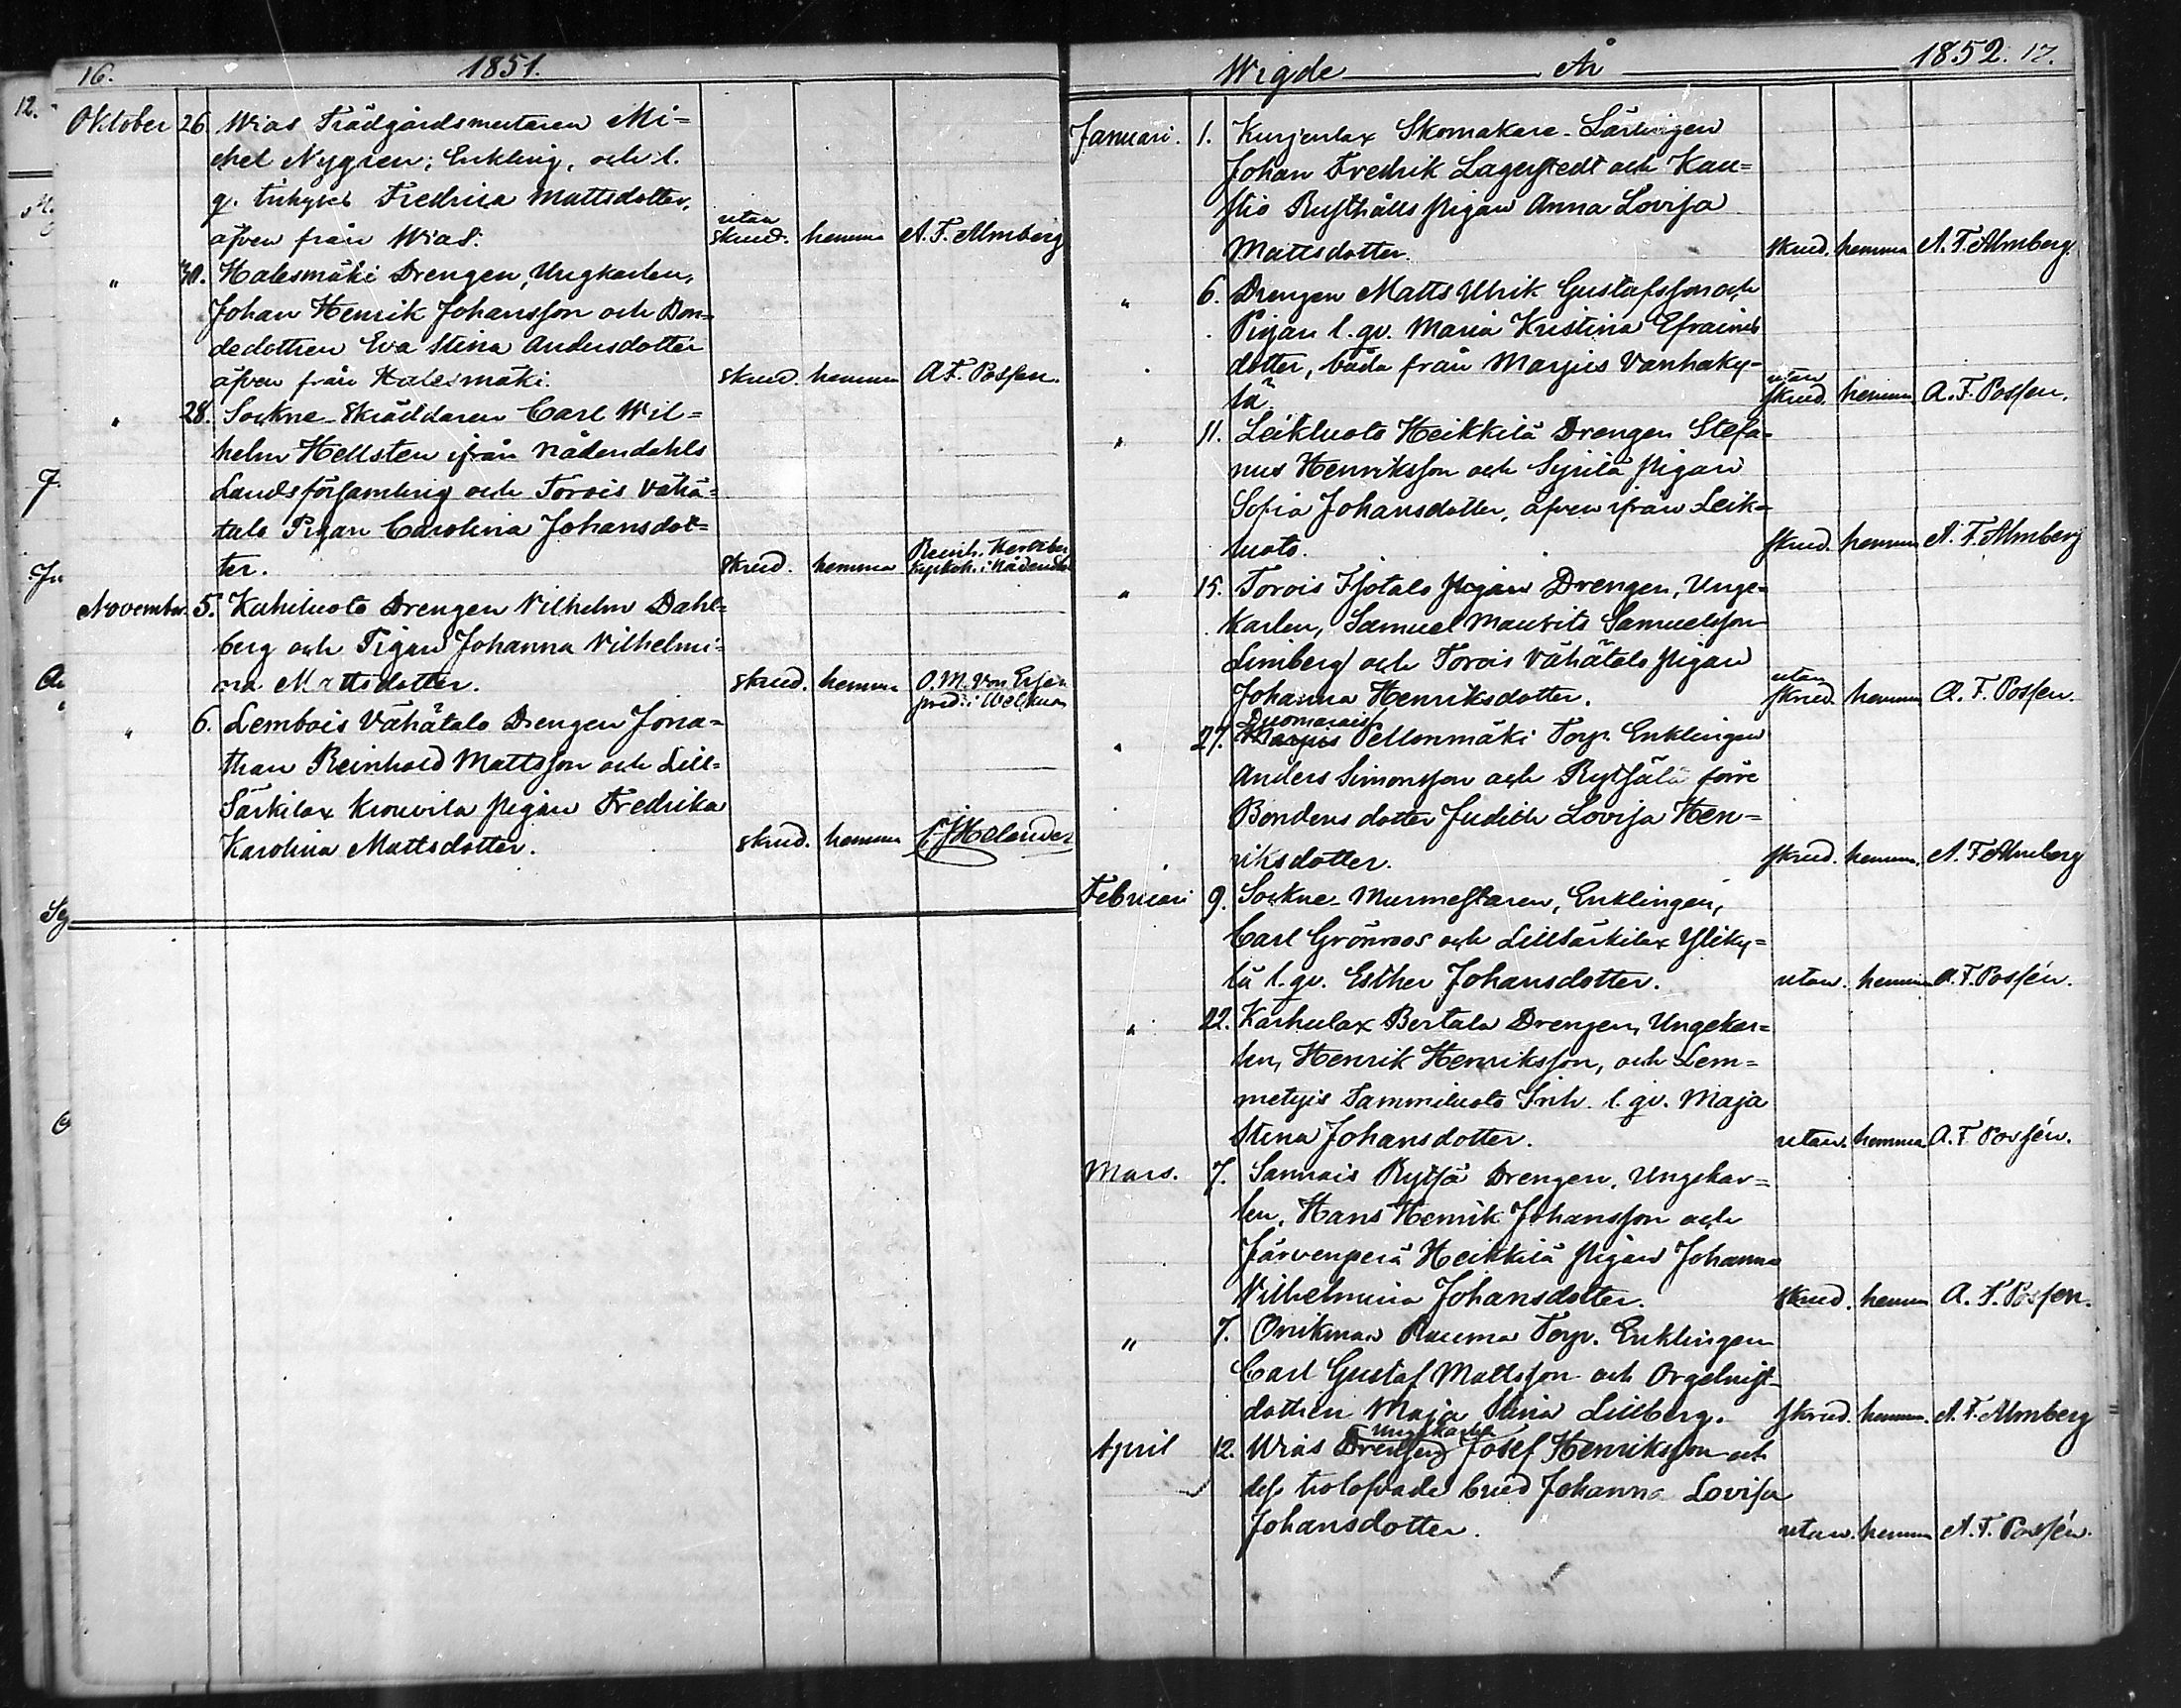 16. 1851.
Oktober 26. Wias Trädgårdsmestaren Mi=
chel Nygren; Enkling, och l.
q. Inhyses Fredrica Mattsdotter,
äfven från Wias. utan skrud. hemma A. F. Almberg
" 30. Halesmäki Drengen, Ungkarlen,
Johan Henrik Johansson och Bon=
dedottren Eva Stina Andersdotter
äfven från Halesmäki. skrud. hemma A F. Possén.
" 28. Sockne Skräddaren Carl Wil=
helm Hellsten ifrån Nådendahls
Landsförsamling och Torois Vähä=
talo Pigan Carolina Johansdot=
ter. skrud. hemma Reinh. kyrkoh. i Nådendal
November. 5. Kahiluoto Drengen Vilhelm Dahl=
berg och Pigan Johanna Vilhelmi=
na Mattsdotter. skrud. hemma O. M. Von Essen pred: i Velkua
" 6. Lembois Vähätalo Drengen Jona=
than Reinhold Mattsson och Lill=
Särkilax Krouvila pigan Fredrika
Karolina Mattsdotter. skrud. hemma Helander
Wigde År 1852. 17.
Januari. 1. Kurjenlax Skomakare-Lärlingen
Johan Fredrik Lagerstedt och Kau=
stio Rusthålls pigan Anna Lovisa
Mattsdotter. skrud. hemma A. F. Almberg.
" 6. Drengen Matts Ulrik Gustafsson och
Pigan l. qv. Maria Kristina Efraims
dotter, båda från Marjus Vanhaky=
lä. utan skrud. hemma. A. F. Possén.
" 11. Leikluoto Heikkilä Drengen Stefa=
nus Henriksson och Syrilä pigan
Sofia Johansdotter, äfven ifrån Leik=
luoto. skrud. hemma A. F. Almberg
" 15. Torois Isotalo pigan Drengen, Unge=
karlen, Samuel Maurits Samuelsson
Limberg och Torois Vähätalo pigan
Johanna Henriksdotter. utan skrud. hemma A. F. Possén.
" 27. Marjus Pellonmäki Torp. Enklingen
Anders Simonsson och Rytsälä förre
Bondens dotter Judith Lovisa Hen=
riksdotter. skrud. hemma. A. F Almberg
Februari 9. Sockne-Murmestaren, Enklingen,
Carl Grönroos och Lillsärkilax Yliky=
lä l. qv. Esther Johansdotter. utan. hemma A. F. Possén.
" 22. Karhulax Bertala Drengen, Ungekar=
len, Henrik Henriksson, och Lem=
metyis Tammiluoto Inh. l. qv. Maja
Stina Johansdotter. utan. hemma A. F Possén.
Mars. 7. Sannais Rytsä Drengen, Ungekar=
len, Hans Henrik Johansson och
Järvenperä Heikkilä pigan Johanna
Wilhelmina Johansdotter. skrud. hemma A. F. Possén.
" 7. Onikmaa Rauma Torp. Enklingen
Carl Gustaf Mattsson och Orgelnist
dottren Maja Stina Lillberg. skrud. hemma. A. F. Almberg
Ungekarlen
April 12. Wias Drengen Josef Henriksson och
dess trolofvade brud Johanna Lovisa
Johansdotter. utan. hemma A. F. Possén.